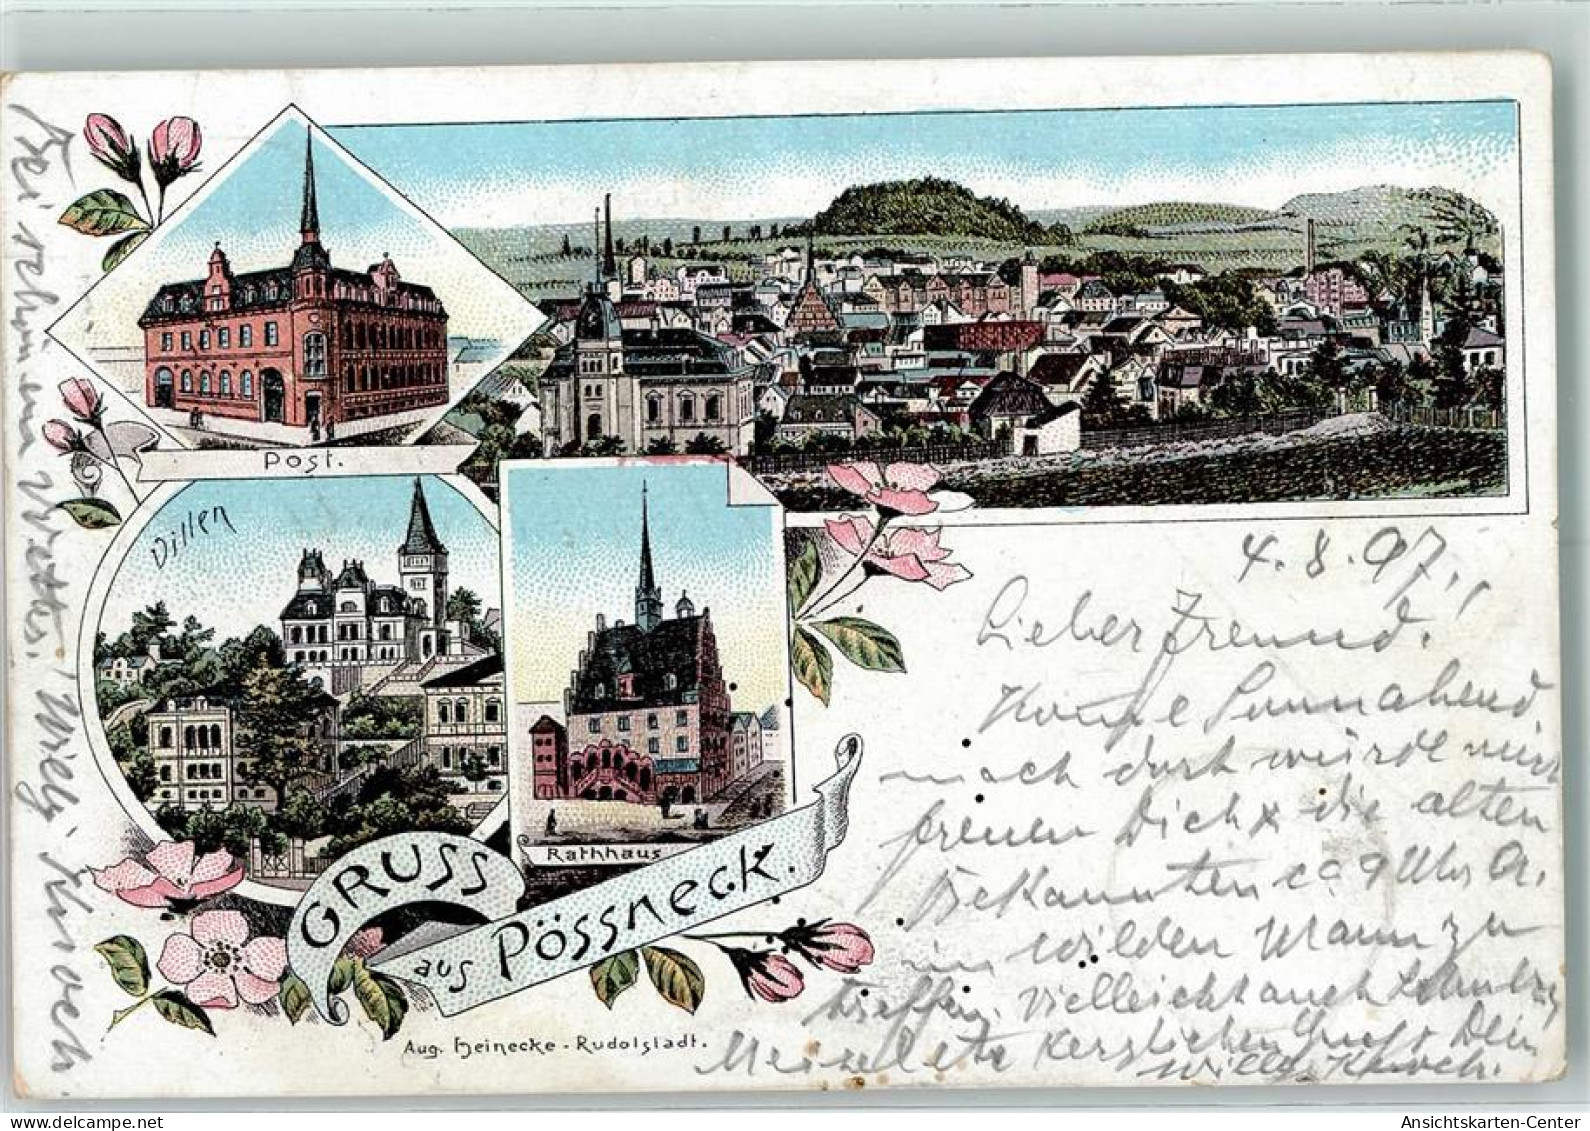 Post.
Villen
Rathhaus
GRUSS
aus Pössneck.
Aug. Heinecke - Rudolstadt.
4.8.97.
Lieber Freund.
Komme Sonnabend
nach dort würde mich
freuen Dich & die alten
Bekannten ca 9 Uhr A.
im wilden Mann zu
treffen. Vielleicht auch
Meisel etc Herzlichen Gruss Dein
Willy
Bei schönem Wetter. Willy
Ansichtskarten-Center